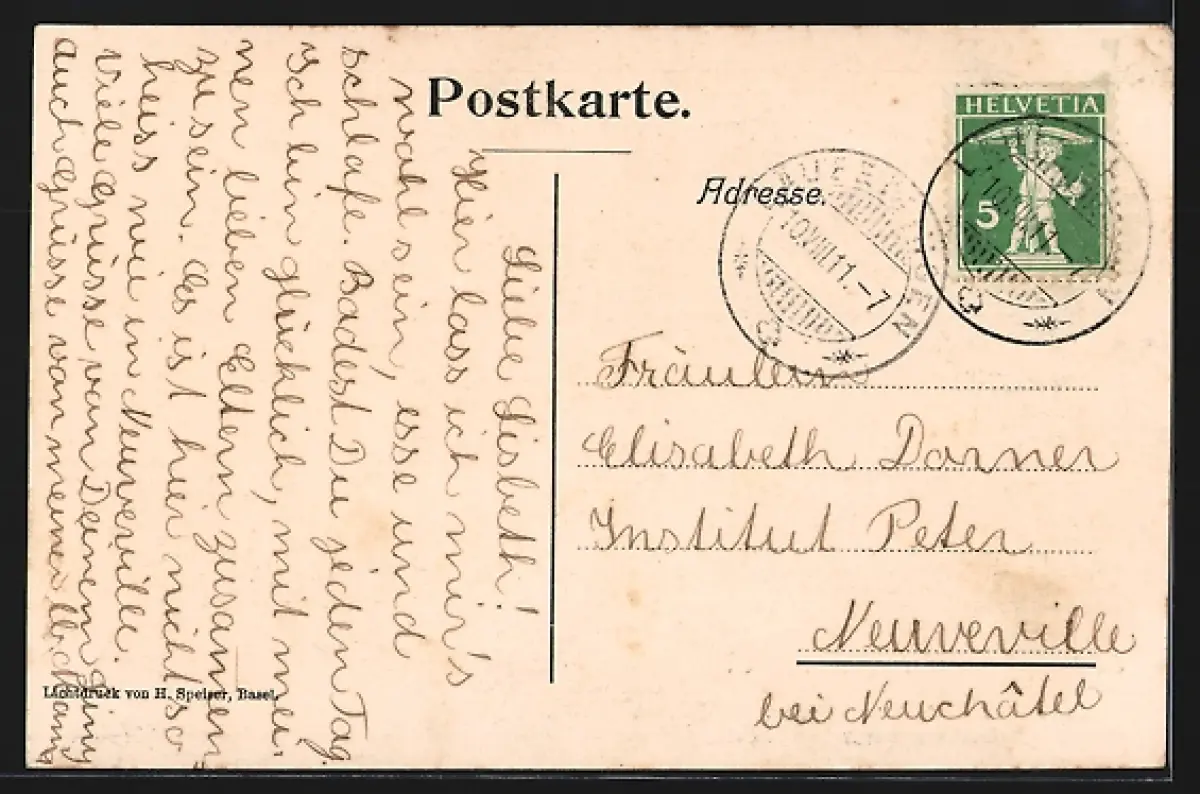 Postkarte.
Adresse.
HELVETIA
5
10.VIII.11.-7
Fräulein
Elisabeth Dorner
Institut Peter
Neuveville
bei Neuchâtel
Liebe Lisbeth!
Hier lass ich mir's
wohl sein, esse und
schlafe. Badest Du jeden Tag.
Ich bin glücklich, mit mei-
nen lieben Eltern zusammen
zu sein. Es ist hier nicht so
heiss wie in Neuveville.
Viele Grüsse von Deinem
auch Grüsse von meiner lb. Mama
Lichtdruck von H. Speiser, Basel.